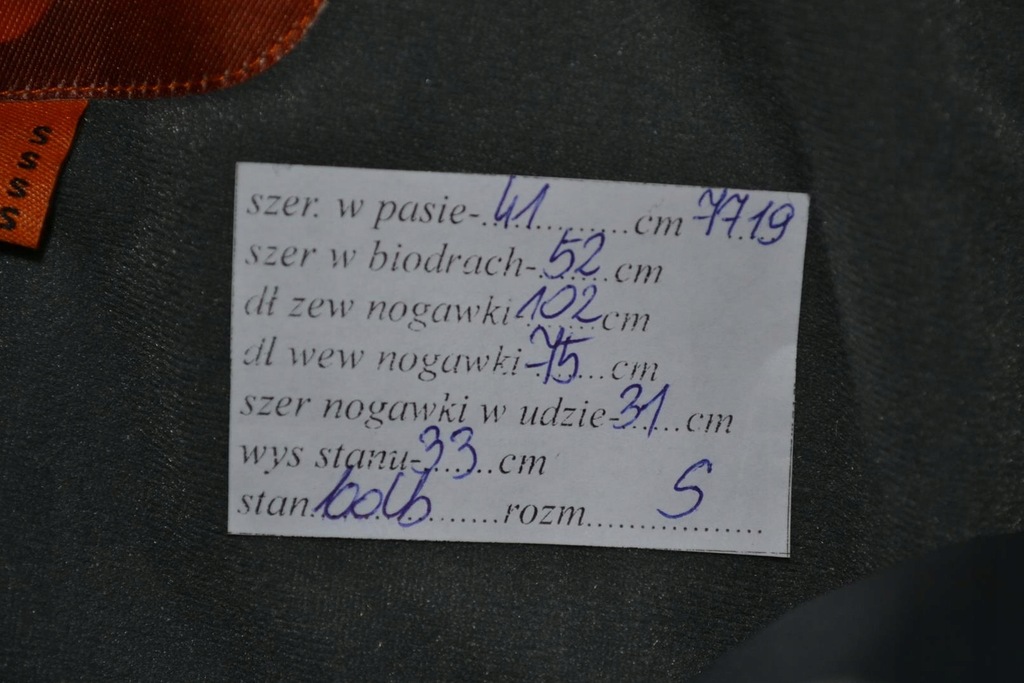 S S S S
szer. w pasie-.41..........cm 7719
szer w biodrach-.52..cm
dł zew nogawki 102 cm
dł wew nogawki-75...cm
szer nogawki w udzie-31...cm
wys stanu-33...cm
stan.........rozm.......S.........